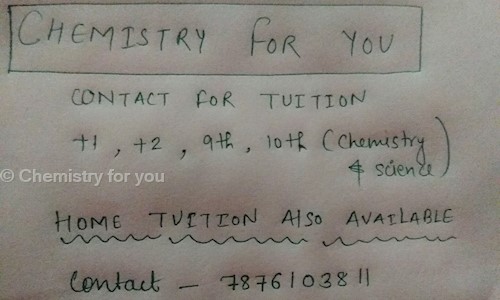 CHEMISTRY FOR YOU
CONTACT FOR TUITION
+1, +2, 9th, 10th (Chemistry
& science)
© Chemistry for you
HOME TUITION AlSO AVAILABLE
Contact - 7876103811